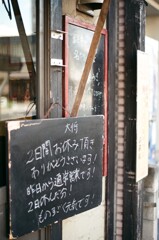 大将
2日間お休み頂き
ありがとうございます!
昨日から通常営業です!
2日休んだら!
ものすごく元気です!